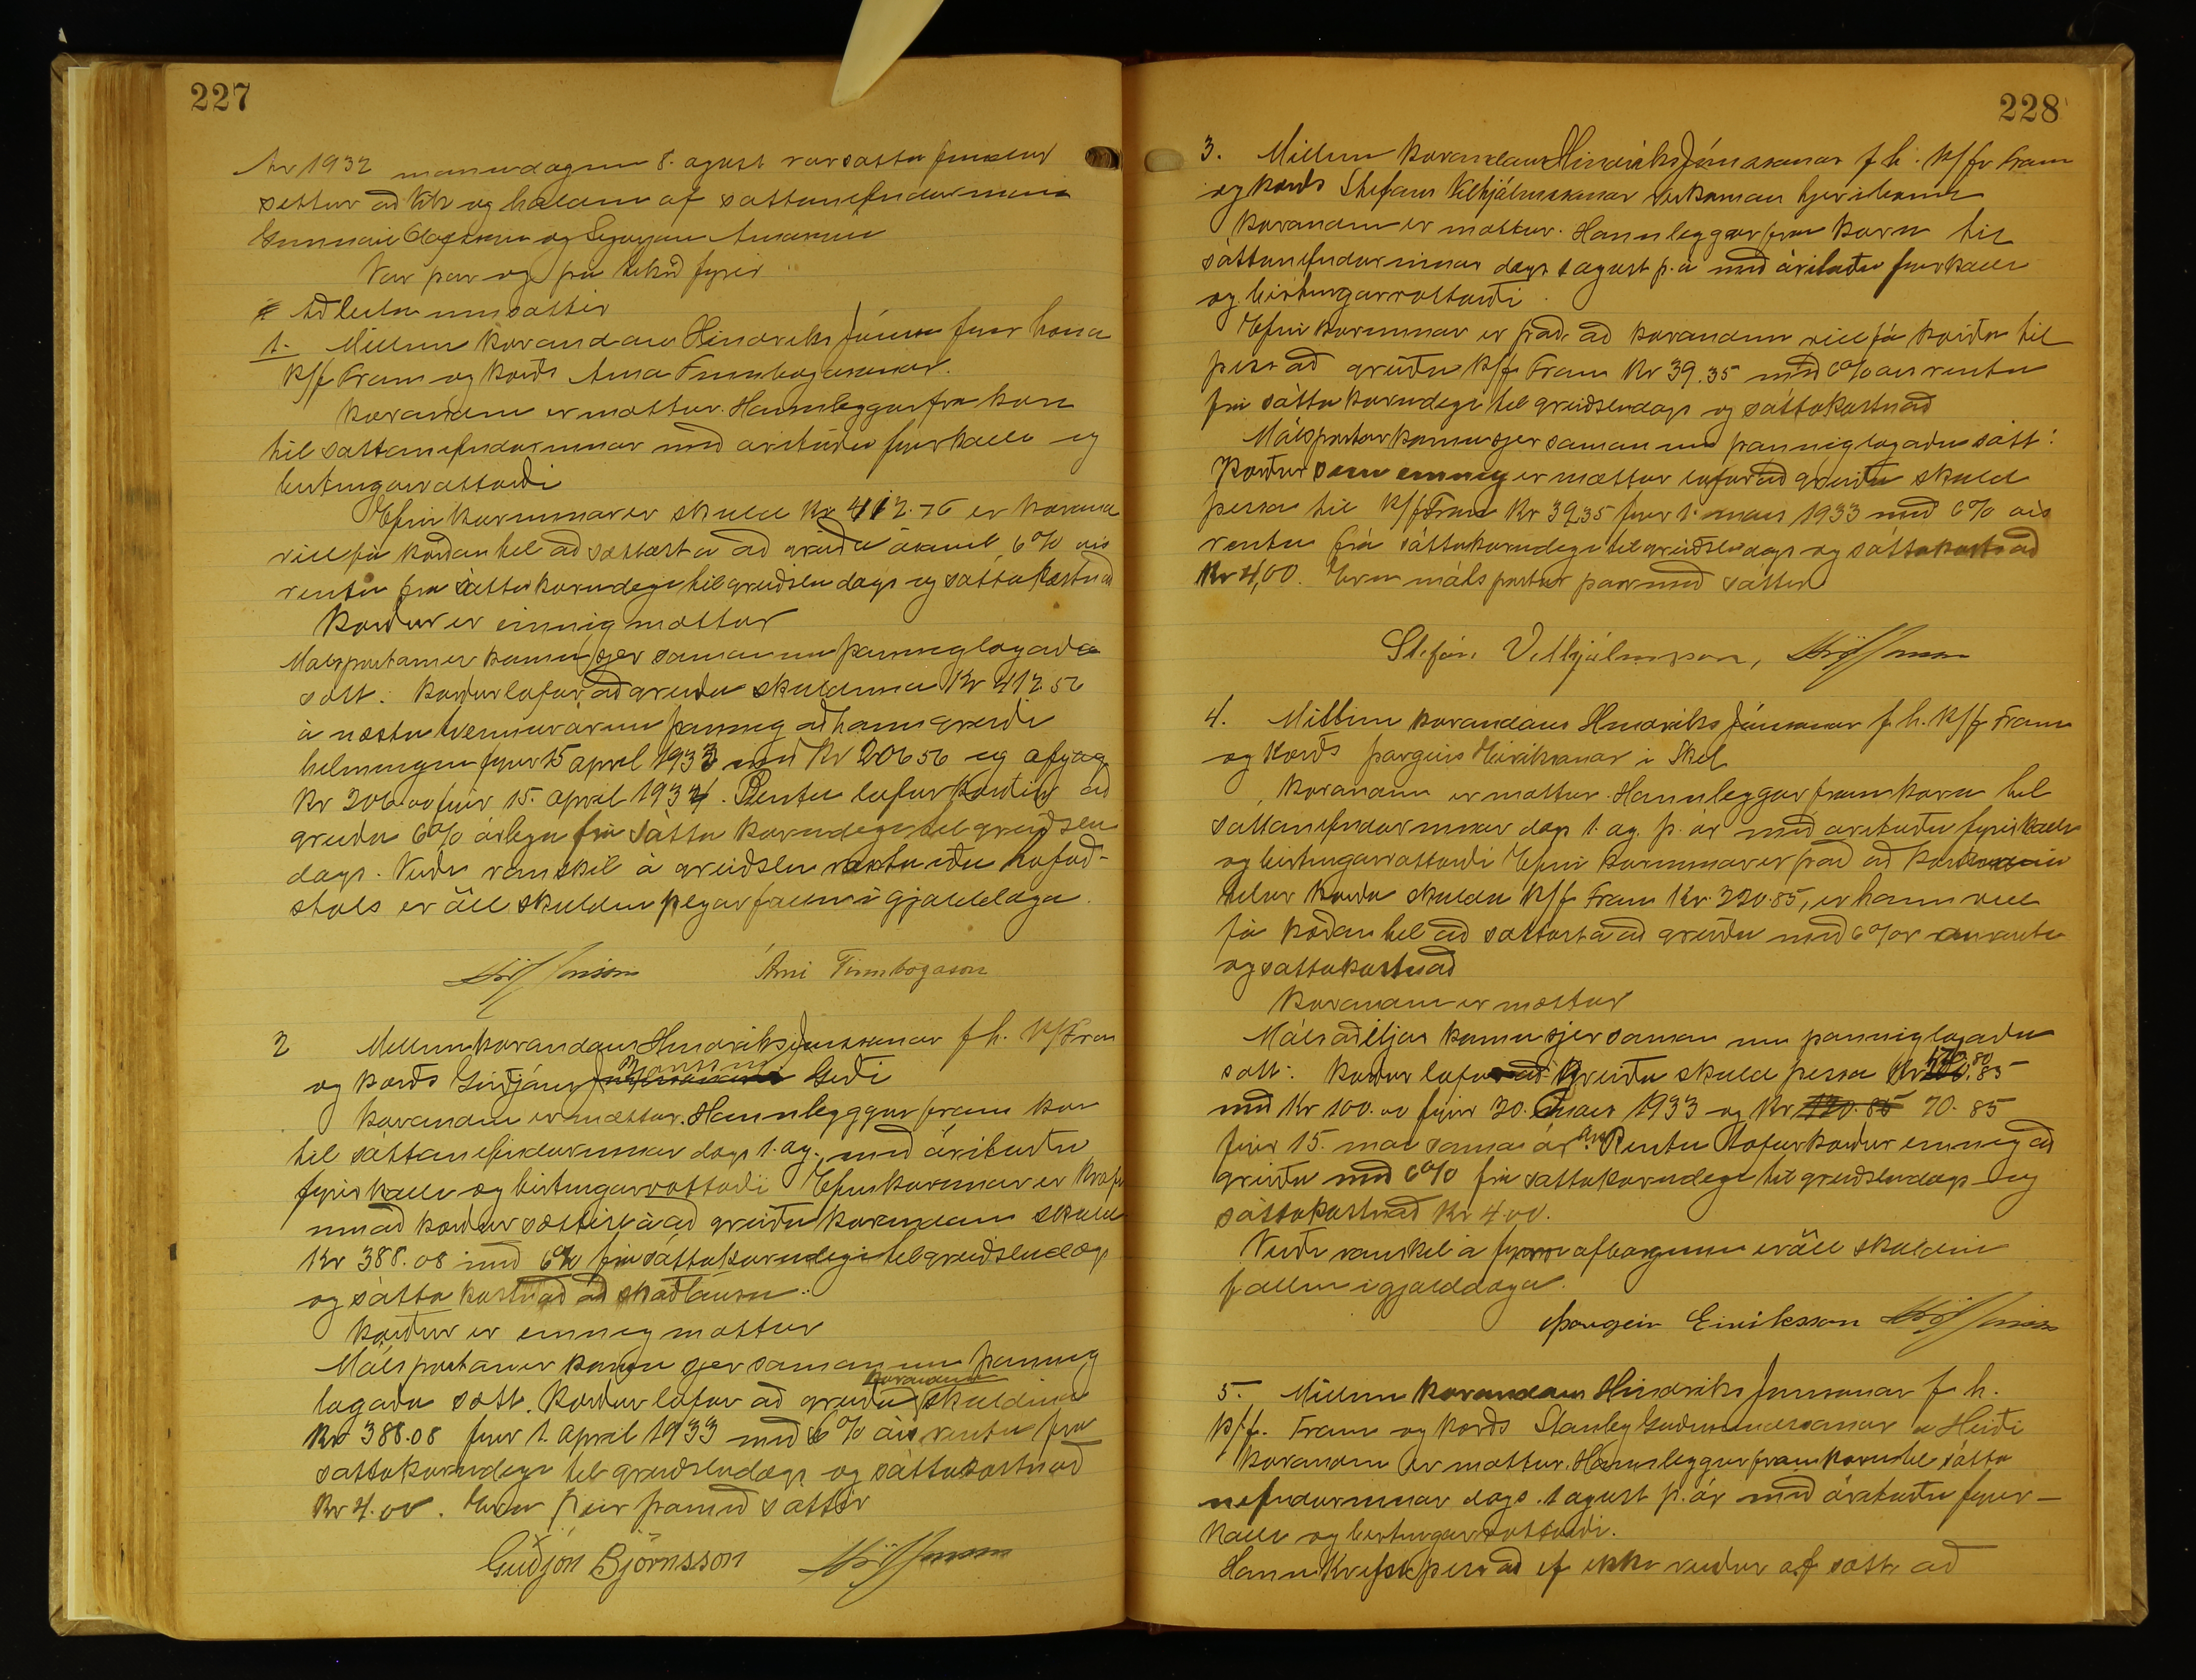 227
Ár 1932 mánudaginn 8. ágúst var sátta fundur
settur að og haldinn af sáttanefndarmönnum
Gunnari og Sigurjóni
Var þar og þá tekið fyrir
Að leita um sættir
1. Millum kærandans Hindriks Jónss fyrir hönd
K/f Fram og kærðs Árna Finnbogasonar.
Kærandinn er mættur. Hann leggur fra kæru
til sáttanefndarinnar með árituðu fyrirkalli og
birtingarvottorði
Efni kærunnar er skuld Kr 412.56 er kærandi
vill fá kærðan til að sættast á að greiða ásamt 6% árs
rentu frá sáttakærudegi til greiðsludags og sáttakostnað
Kærður er einnig mættur
Málspartarnir koma sjer saman um þannig lagaða
sátt: Kærður lofar að greiða skuldina Kr 412.56
á næstu tvennur árum þannig að hann greiði
helminginn fyrir 15 april 1933 með Kr 206 56 og afgang
Kr 206.00 fyrir 15. april 1934. Rentu lofar kærður að
greiða 6% árlega frá sátta kærudegi til greiðslu
dags. Verði vanskil á greiðslu rentu eða höfuð-
stóls er öll skuldin þegar fallin í gjalddaga.
Árni Finnbogason
2 Millum kærandans Hindriks Jónssonar f h. K/f Fram
Björnssonar
og kærðs Guðjóns
Kærandinn er mættur. Hann leggur fram kæru
til sáttanefndarinnar dags 1. ág. með árituðu
fyrirkalli og birtingarvottorði Efni kærunnar er krafa
um að kærður sættist á að greiða kærandanum skuld
Kr 388.08 með 6% frá sáttakærudegi til greiðsludags
og sátta kostnað að skaðlausu.
Kærður er einnig mættur
Málspartarnir koma sjer saman um þannig
kærandanum
lagaða sátt. Kærður lofar að greiða skuldina
Kr 388.08 fyrir 1. april 1933 með 6% árs rentu frá
sáttakærudegi til greiðsludags og sáttakostnað
Kr 4.00. Eru þeir þarmeð sáttir
Guðjón Björnsson
228
3. Millum kærandans Hindriks Jónssonar f h. K/f Fram
og kærðs Stefáns Vilhjálmssonar
Kærandinn er mættur. Hann leggur fram kæru til
sáttanefndarinnar dags 1 ágúst þ.á með árituðu fyrirkalli
og birtingarvottorði.
Efni kærunnar er það að kærandinn vill fá kærða til
þess að greiða K/f Fram Kr 39.35 með 6% ársrentu
frá sáttakærudegi til greiðsludags og sáttakostnað
Málspartar koma sjer saman um þannig lagaða sátt:
Kærður sem einnig er mættur lofar að greiða skuld
þessa til K/f Fram Kr 39.35 fyrir 1. mars 1933 með 6% árs
rentu frá sáttakærudegi til greiðsludags og sáttakostnað
Kr 4,00. Eru málspartar þarmeð sáttir
Stefán Vilhjálmsson,
4. Millum kærandans Hindriks Jónssonar f. h. K/f Fram
og kærðs Þorgeirs Eiríkssonar í Skel
Kærandinn er mættur. Hann leggur fram kæru til
sáttanefndarinnar dags 1. ág. þ. ár með árituðu fyrirkalli
og birtingarvottorði Efni kærunnar er það að kærandinn
telur kærða skulda K/f Fram Kr. 220.85, er hann vill
fá kærðan til að sættast á að greiða með 6% ársrentu
og sáttakostnað
Kærandinn er mættur
Málsaðiljar koma sjer saman um þannig lagaða
sátt: Kærður lofar að greiða skuld þessa Kr 170.80
með Kr 100.00 fyrir 30. mars 1933 og Kr 120.85 70.85
fyrir 15. mai sama ár. Rentu lofar kærður einnig að
greiða með 6% frá sáttakærudegi til greiðsludags og
sáttakostnað Kr 4.00.
Verði vanskil á fyrri afborgunum er öll skuldin
fallin í gjalddaga.
Þorgeir Eiríksson
5. Millum kærandans Hindriks Jónssonar f. h.
K/f. Fram og kærðs Stanley Guðmundssonar Heiði
Kærandinn er mættur. Hann leggur fram kæru til sátta
nefndarinnar dags. 1 ágúst þ. ár með árituðu fyrir-
kalli og birtingarvottorði.
Hann krefst þess að ef ekki verður af sátt að